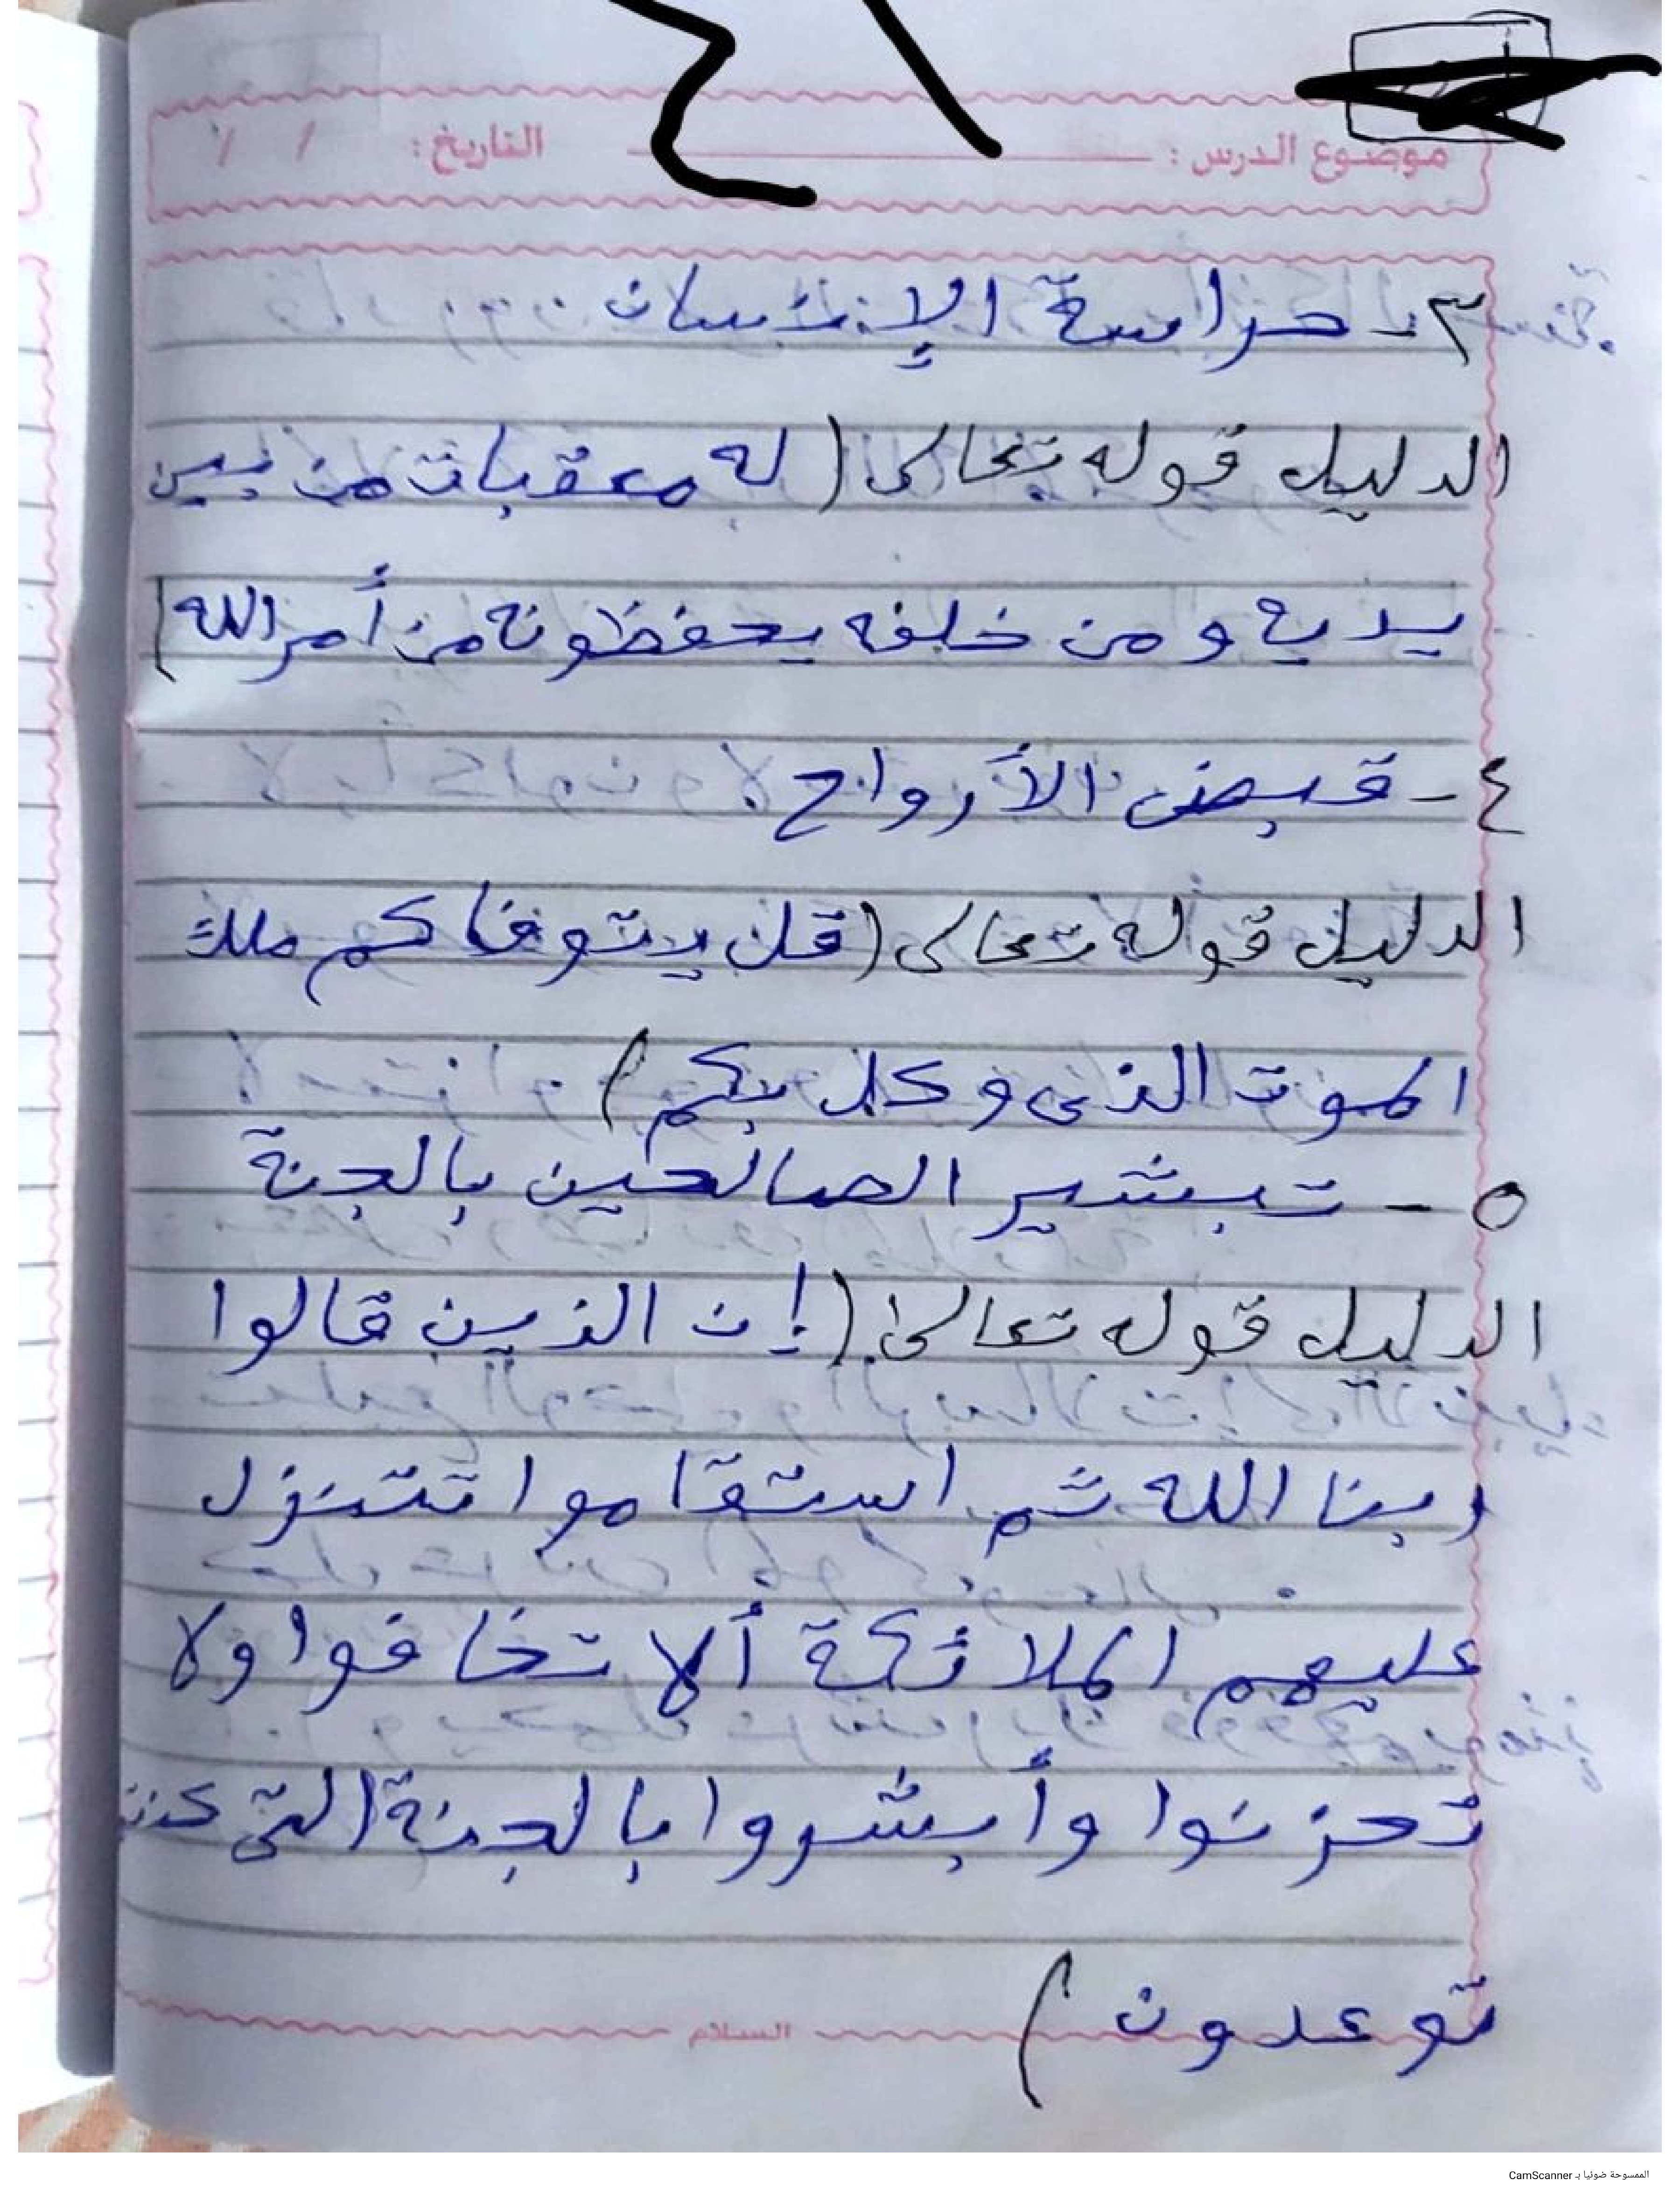 ٤١
موضوع الدرس : التاريخ : / /
٣- حراسة الإنسان
الدليل قوله تعالى ( له معقبات من بين
يديه ومن خلفه يحفظونه من أمر الله )
٤- قبض الأرواح
الدليل قوله تعالى ( قل يتوفاكم ملك
الموت الذى وكل بكم )
٥- تبشير الصالحين بالجنة
الدليل قوله تعالى ( إن الذين قالوا
ربنا الله ثم استقاموا تتنزل
عليهم الملائكة ألا تخافوا ولا
تحزنوا وأبشروا بالجنة التى كنتم
توعدون )
السلام
الممسوحة ضوئيا بـ CamScanner